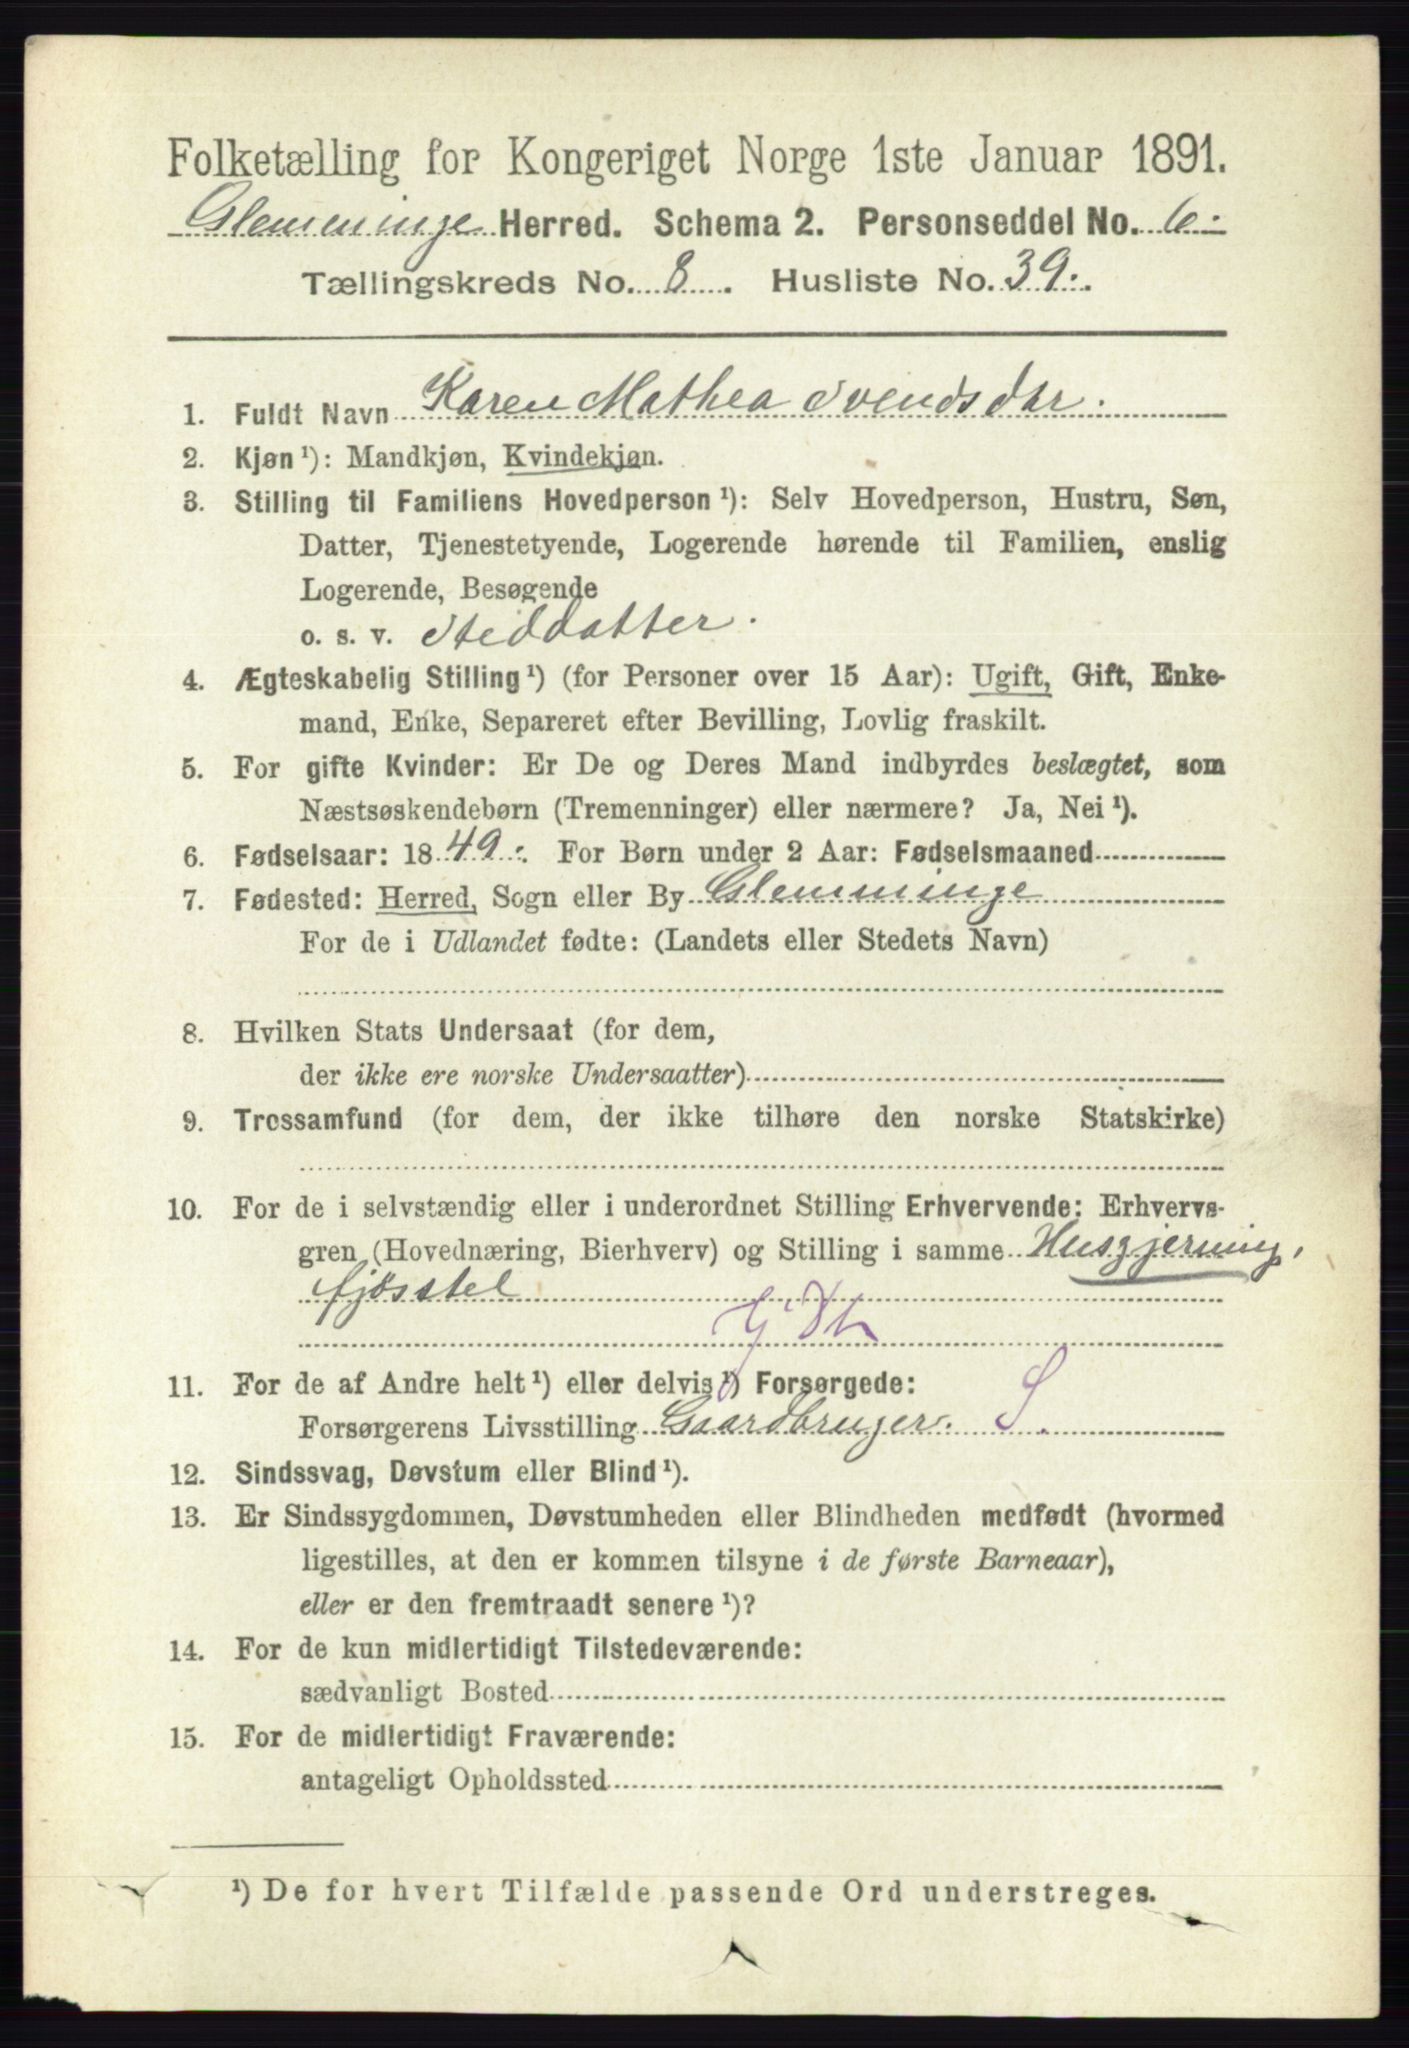 Folketælling for Kongeriget Norge 1ste Januar 1891.
Glemminge Herred. Schema 2. Personseddel No. 6.
Tællingskreds No. 8. Husliste No. 39.
1. Fuldt Navn Karen Mathea Svendsdtr.
2. Kjøn ¹): Mandkjøn, Kvindekjøn.
3. Stilling til Familiens Hovedperson ¹): Selv Hovedperson, Hustru, Søn,
Datter, Tjenestetyende, Logerende hørende til Familien, enslig
Logerende, Besøgende
o. s. v. Steddatter.
4. Ægteskabelig Stilling ¹) (for Personer over 15 Aar): Ugift, Gift, Enke-
mand, Enke, Separeret efter Bevilling, Lovlig fraskilt.
5. For gifte Kvinder: Er De og Deres Mand indbyrdes beslægtet, som
Næstsøskendebørn (Tremenninger) eller nærmere? Ja, Nei ¹).
6. Fødselsaar: 1849. For Børn under 2 Aar: Fødselsmaaned
7. Fødested: Herred, Sogn eller By Glemminge
For de i Udlandet fødte: (Landets eller Stedets Navn)
8. Hvilken Stats Undersaat (for dem,
der ikke ere norske Undersaatter)
9. Trossamfund (for dem, der ikke tilhøre den norske Statskirke)
10. For de i selvstændig eller i underordnet Stilling Erhvervende: Erhvervs-
gren (Hovednæring, Bierhverv) og Stilling i samme Husgjerning,
fjösstel
11. For de af Andre helt ¹) eller delvis ¹) Forsørgede:
Forsørgerens Livsstilling Gaardbruger. S.
12. Sindssvag, Døvstum eller Blind ¹).
13. Er Sindssygdommen, Døvstumheden eller Blindheden medfødt (hvormed
ligestilles, at den er kommen tilsyne i de første Barneaar),
eller er den fremtraadt senere ¹)?
14. For de kun midlertidigt Tilstedeværende:
sædvanligt Bosted
15. For de midlertidigt Fraværende:
antageligt Opholdssted
¹) De for hvert Tilfælde passende Ord understreges.